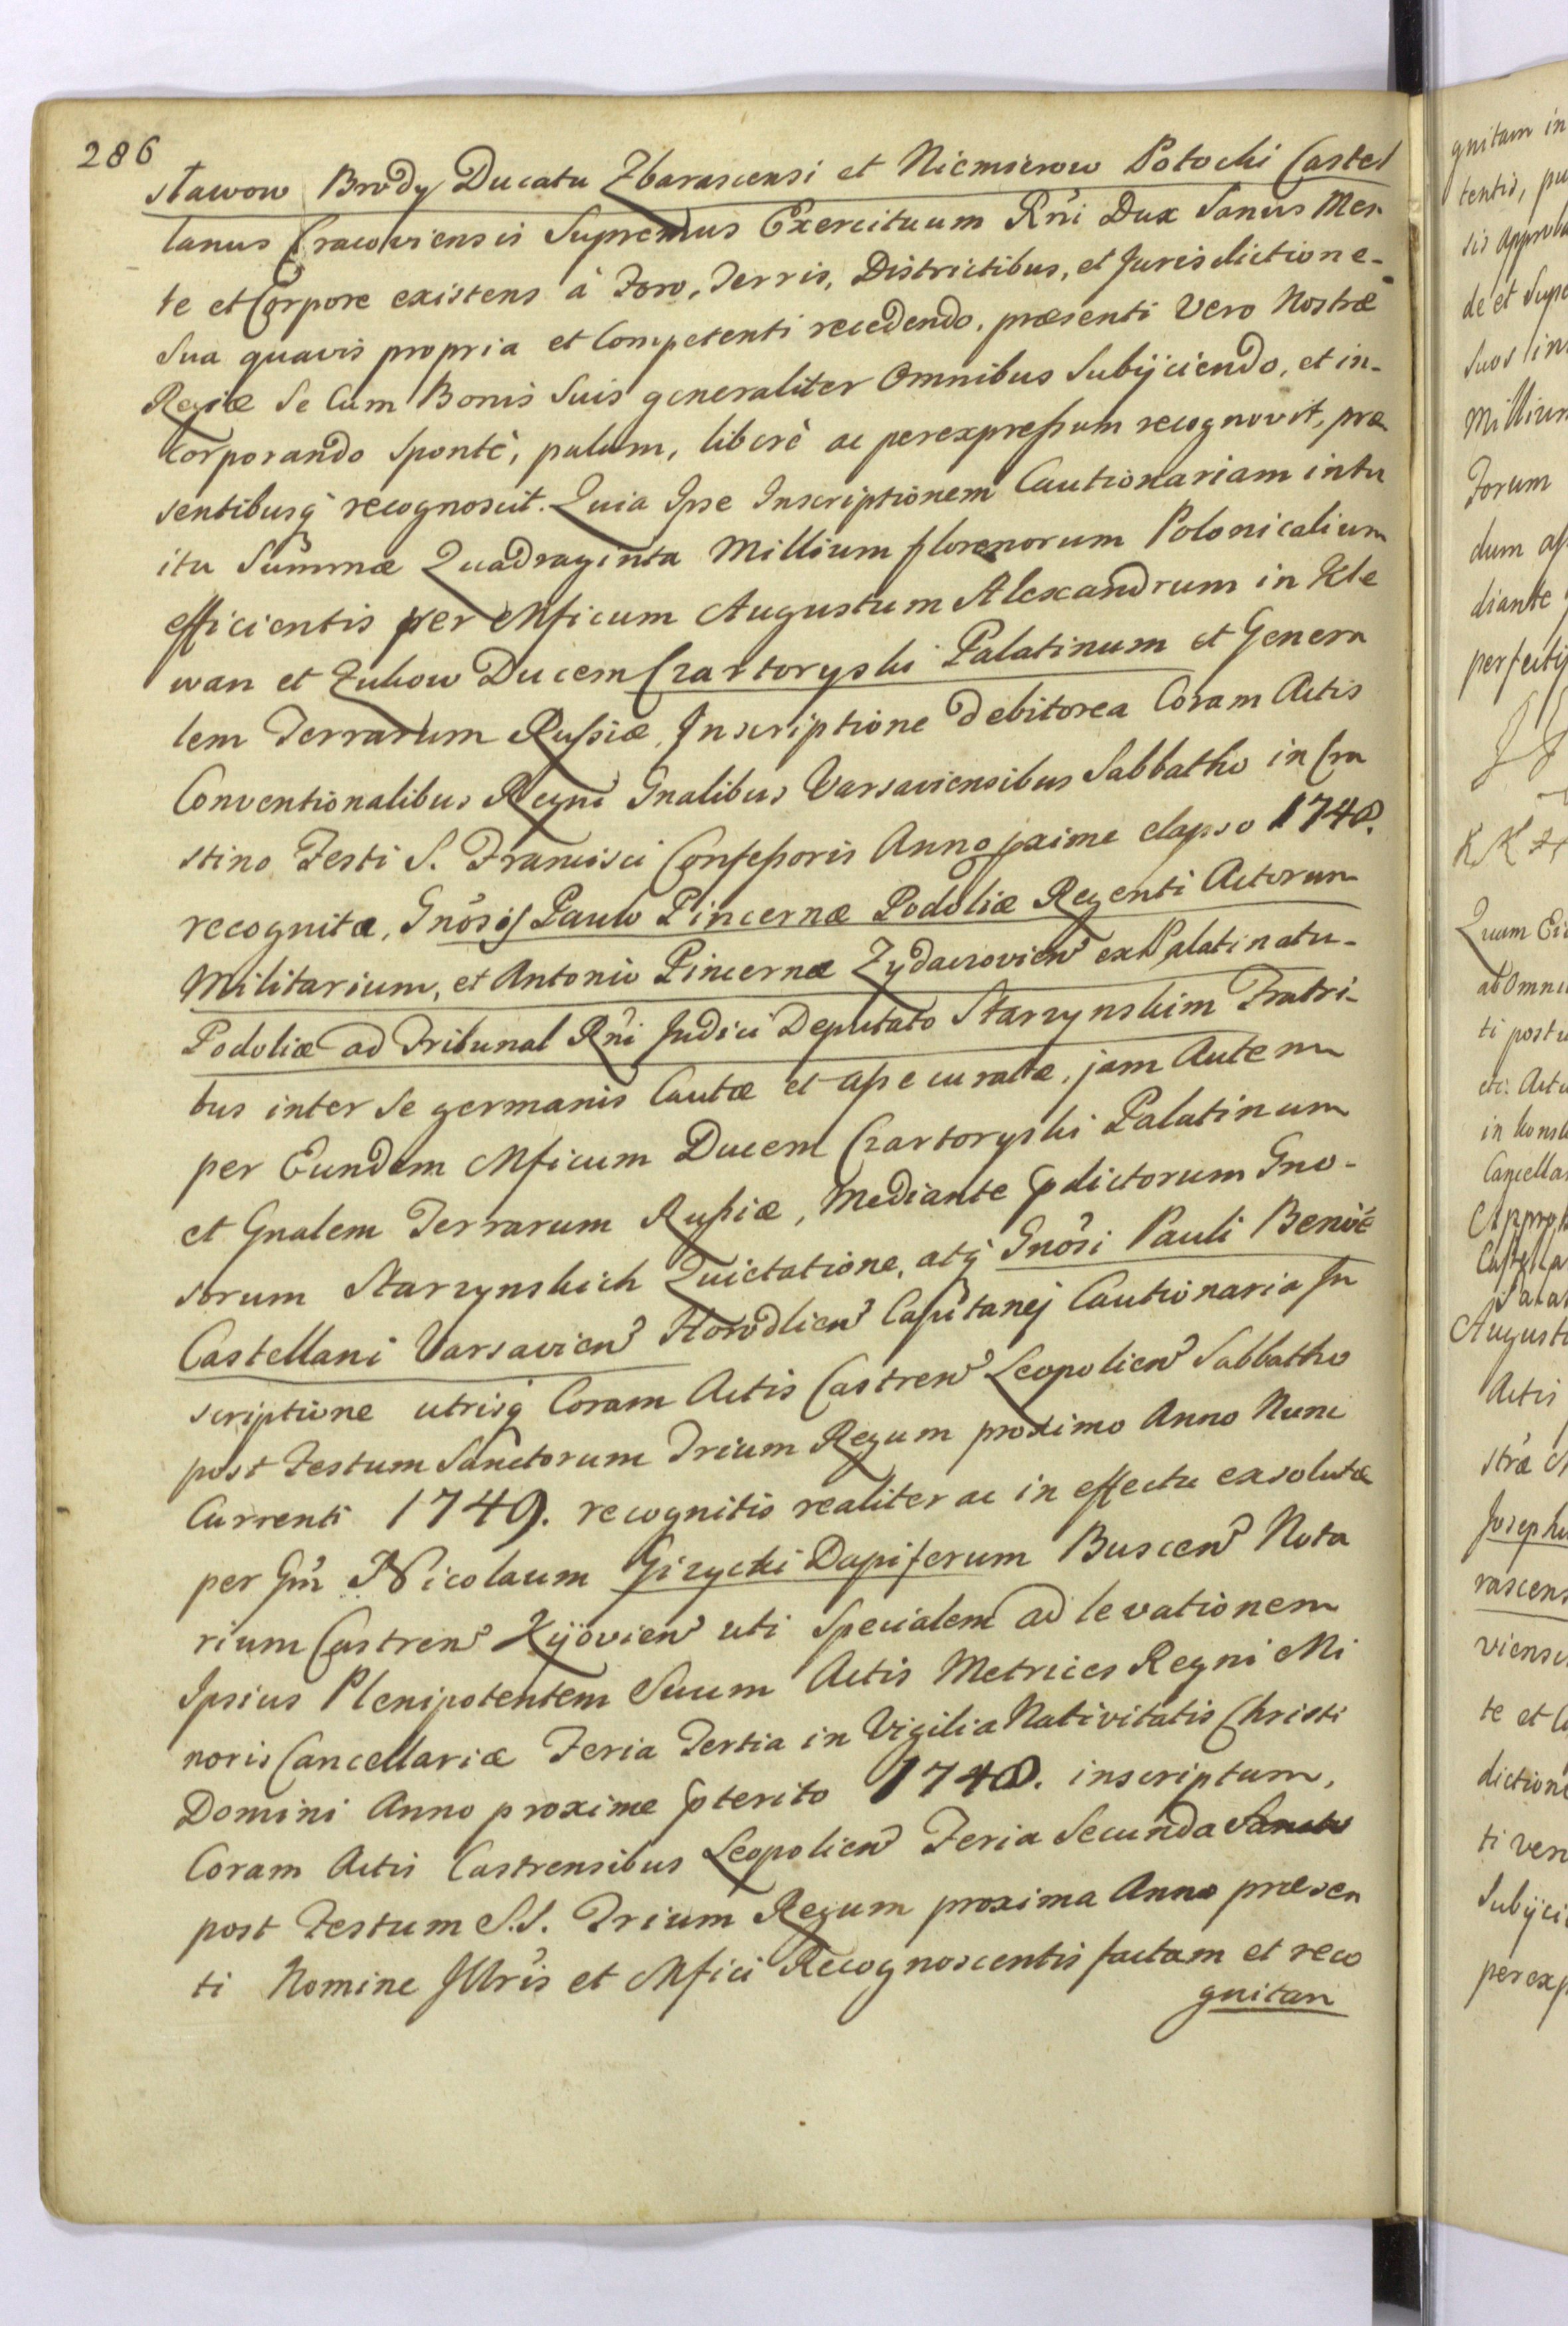 286
stawow Brody Ducatu Zbarascensi et Niemierow Potocki Castel
lanus Cracoviensis Supremus Exercituum Rñi Dux Sanus Men-
te et Corpore existens à Foro, Terris, Districtibus, et Jurisdictione-
Sua quavis propria et Competenti recedendo, præsenti Vero Nostræ
Regiæ Se Cum Bonis Suis generaliter Omnibus Subijciendo, et in-
corporando Spontè, palam, liberè ac perexpressum recognovit, præ
sentibusq́ recognoscit. Quia Ipse Inscriptionem Cautionariam intu
itu Summæ Quadraginta Millium florenorum Polonicalium
efficientis per Mficum Augustum Alexandrum in Kle
wan et Zukow Ducem Czartoryski Palatinum et Genera
lem Terrarum Russiæ, Inscriptione debitorea Coram Actis
Conventionalibus Regni Gnalibus Varsaviensibus Sabbatho in Cra
stino Festi S. Francisci Confessoris Anno pxime elapso 1748.
recognitæ, Gnosis Paulo Pincernæ Podoliæ Regenti Actorum
Militarium, et Antonio Pincernæ Zydaczovien̄ ex Palatinatu-
Podoliæ ad Tribunal Rñi Judici Deputato Starzynskim Fratri-
bus inter Se germanis Cautæ et assecuratæ, jam Autem
per Eundem Mficum Ducem Czartoryski Palatinum
et Gnalem Terrarum Russiæ, Mediante pdictorum Gno-
sorum Starzynskich Quietatione, atq́ Gnosi Pauli Benoe
Castellani Varsavien̄ Horodlien̄ Capitanej Cautionaria In
scriptione utrisq́ Coram Actis Castren̄ Leopolien̄ Sabbatho
post Festum Sanctorum Trium Regum proximo Anno Nunc
Currenti 1749. recognitis realiter ac in effectu exsolutæ
per Gm̃ Nicolaum Gizycki Dapiferum Buscen̄ Nota
rium Castren̄ Kijovien̄ uti Specialem ad levationem
Ipsius Plenipotentem Suum Actis Metrices Regni Mi
noris Cancellariæ Feria Tertia in Vigilia Nativitatis Christi
Domini Anno proxime pterito 1748. inscriptum,
Coram Actis Castrensibus Leopolien̄ Feria Secunda Sancto
post Festum S.S. Trium Regum proxima Anno præsen
ti Nomine Illris et Mfici Recognoscentis factam et reco
gnitam
gnitam in
tentis, pu
sis approba
de et Supe
Suos in
Millium
Forum
dum
diante
perfectis
Quam
ab Omni
ti post
etc: Actu
in
Cancella
Castella
Augusto
Actis
stra
Josephu
rascens
viensis
te et Co
dictione
ti vero
Subijci
perexp